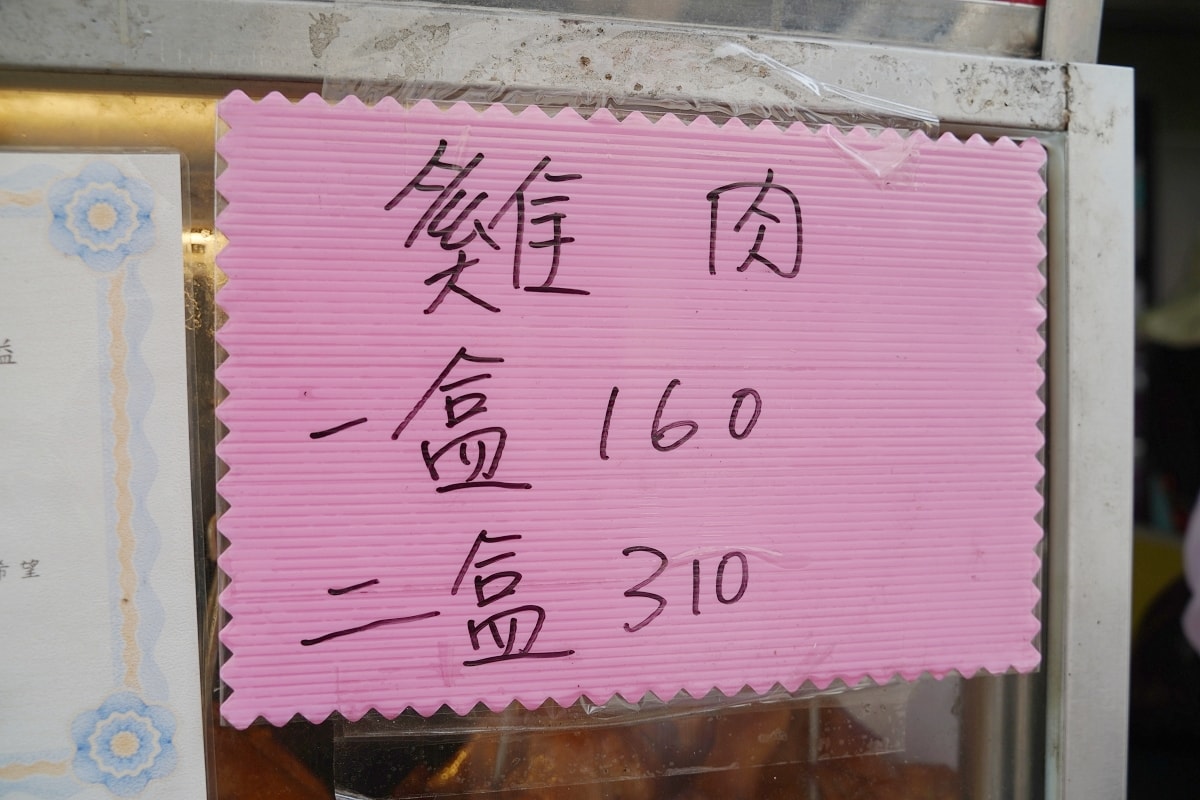 雞 肉
一盒 160
二盒 310
益
希望